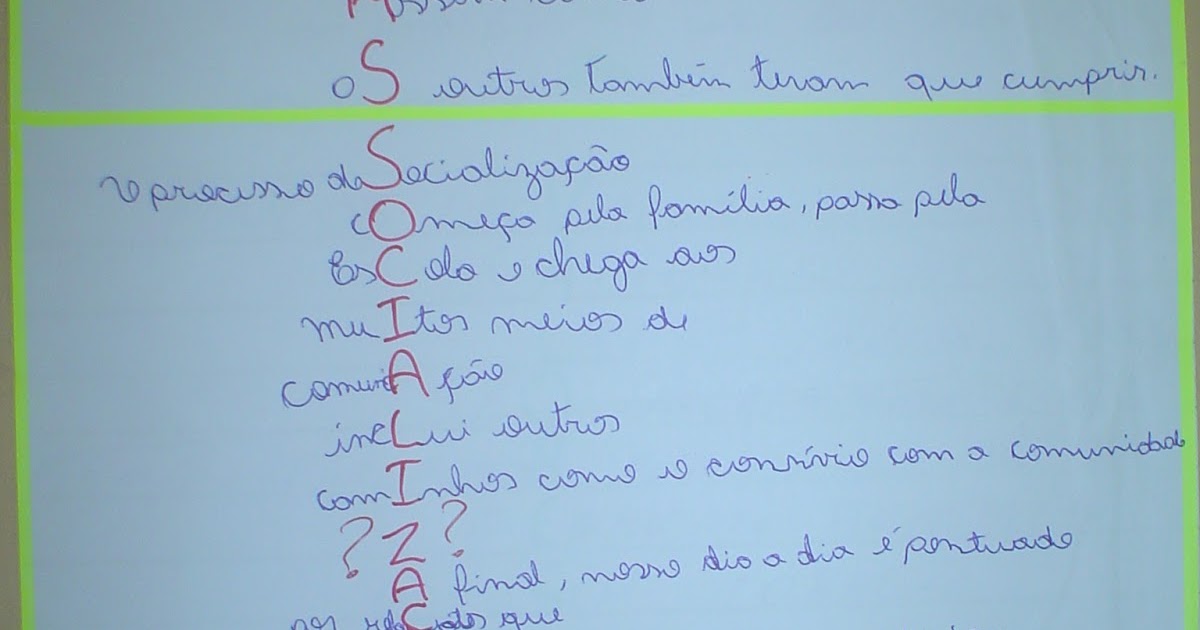 oS outros também teram que cumprir.
O processo de Socialização
cOmeça pela família, passa pela
EsCola e chega aos
muItos meios de
comunicAção
incLui outros
camInhos como o convívio com a comunidade
?Z?
A final, nosso dia a dia é pontuado
que